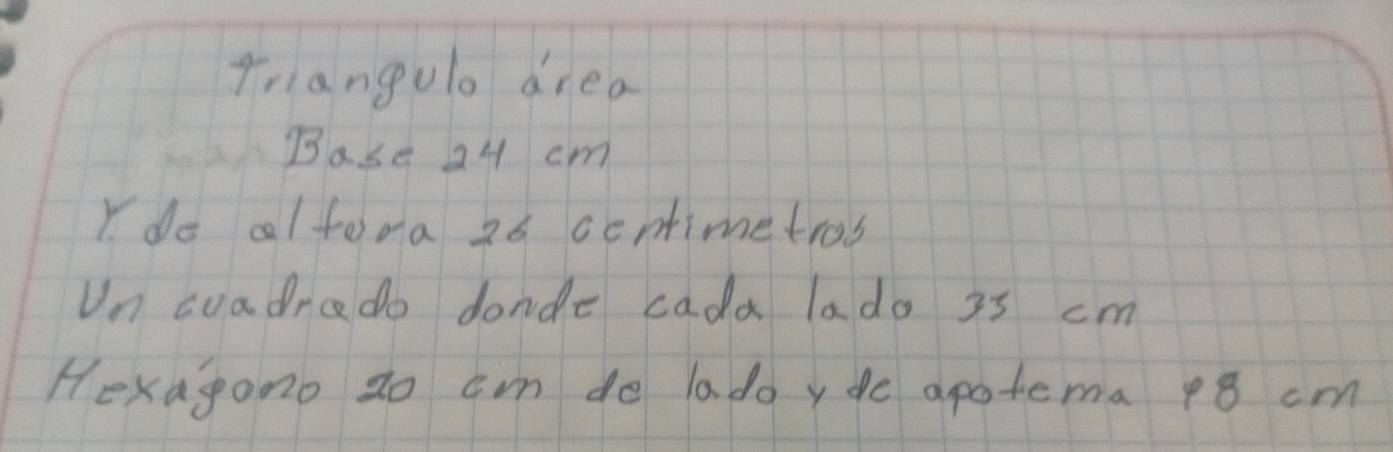 Triangulo área
Base 24 cm
Y. de altura 26 centimetros
Un cuadrado donde cada lado 35 cm
Hexágono 20 cm de lado y de apotema 18 cm